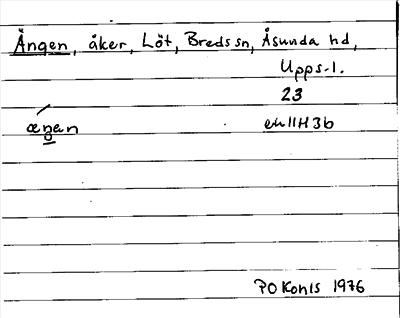 Ängen, åker, Löt, Breds sn, Åsunda hd,
Upps.l.
23
æŋen enl 11H3b
PO Konls 1976